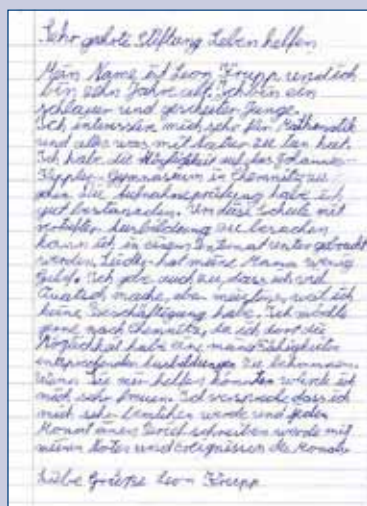 Sehr geehrte Stiftung Leben helfen
Mein Name ist Leon Krupp und ich
bin zehn Jahre alt. Ich bin ein
schlauer und gescheiter Junge.
Ich interessiere mich sehr für Mathematik
und alles was mit Natur zu tun hat.
Ich habe die Möglichkeit auf das Johannes-
Keppler-Gymnasium in Chemnitz zu
gehen. Die Aufnahmeprüfung habe ich
gut bestanden. Um diese Schule mit
vertiefter Ausbildung zu besuchen
kann ich in einem Internat unter gebracht
werden. Leider hat meine Mama wenig
Geld. Ich gebe auch zu, dass ich viel
Quatsch mache, aber nur, weil ich
keine Beschäftigung habe. Ich möchte
gerne nach Chemnitz, da ich dort die
Möglichkeit habe eine meine Fähigkeiten
entsprechenden Ausbildungen zu bekommen.
Wenn Sie mir helfen könnten würde ich
mich sehr freuen. Ich verspreche dass ich
mich sehr bemühen werde und jeden
Monat einen Bericht schreiben werde mit
meinen Noten und Ereignissen des Monats
Liebe Grüße Leon Krupp